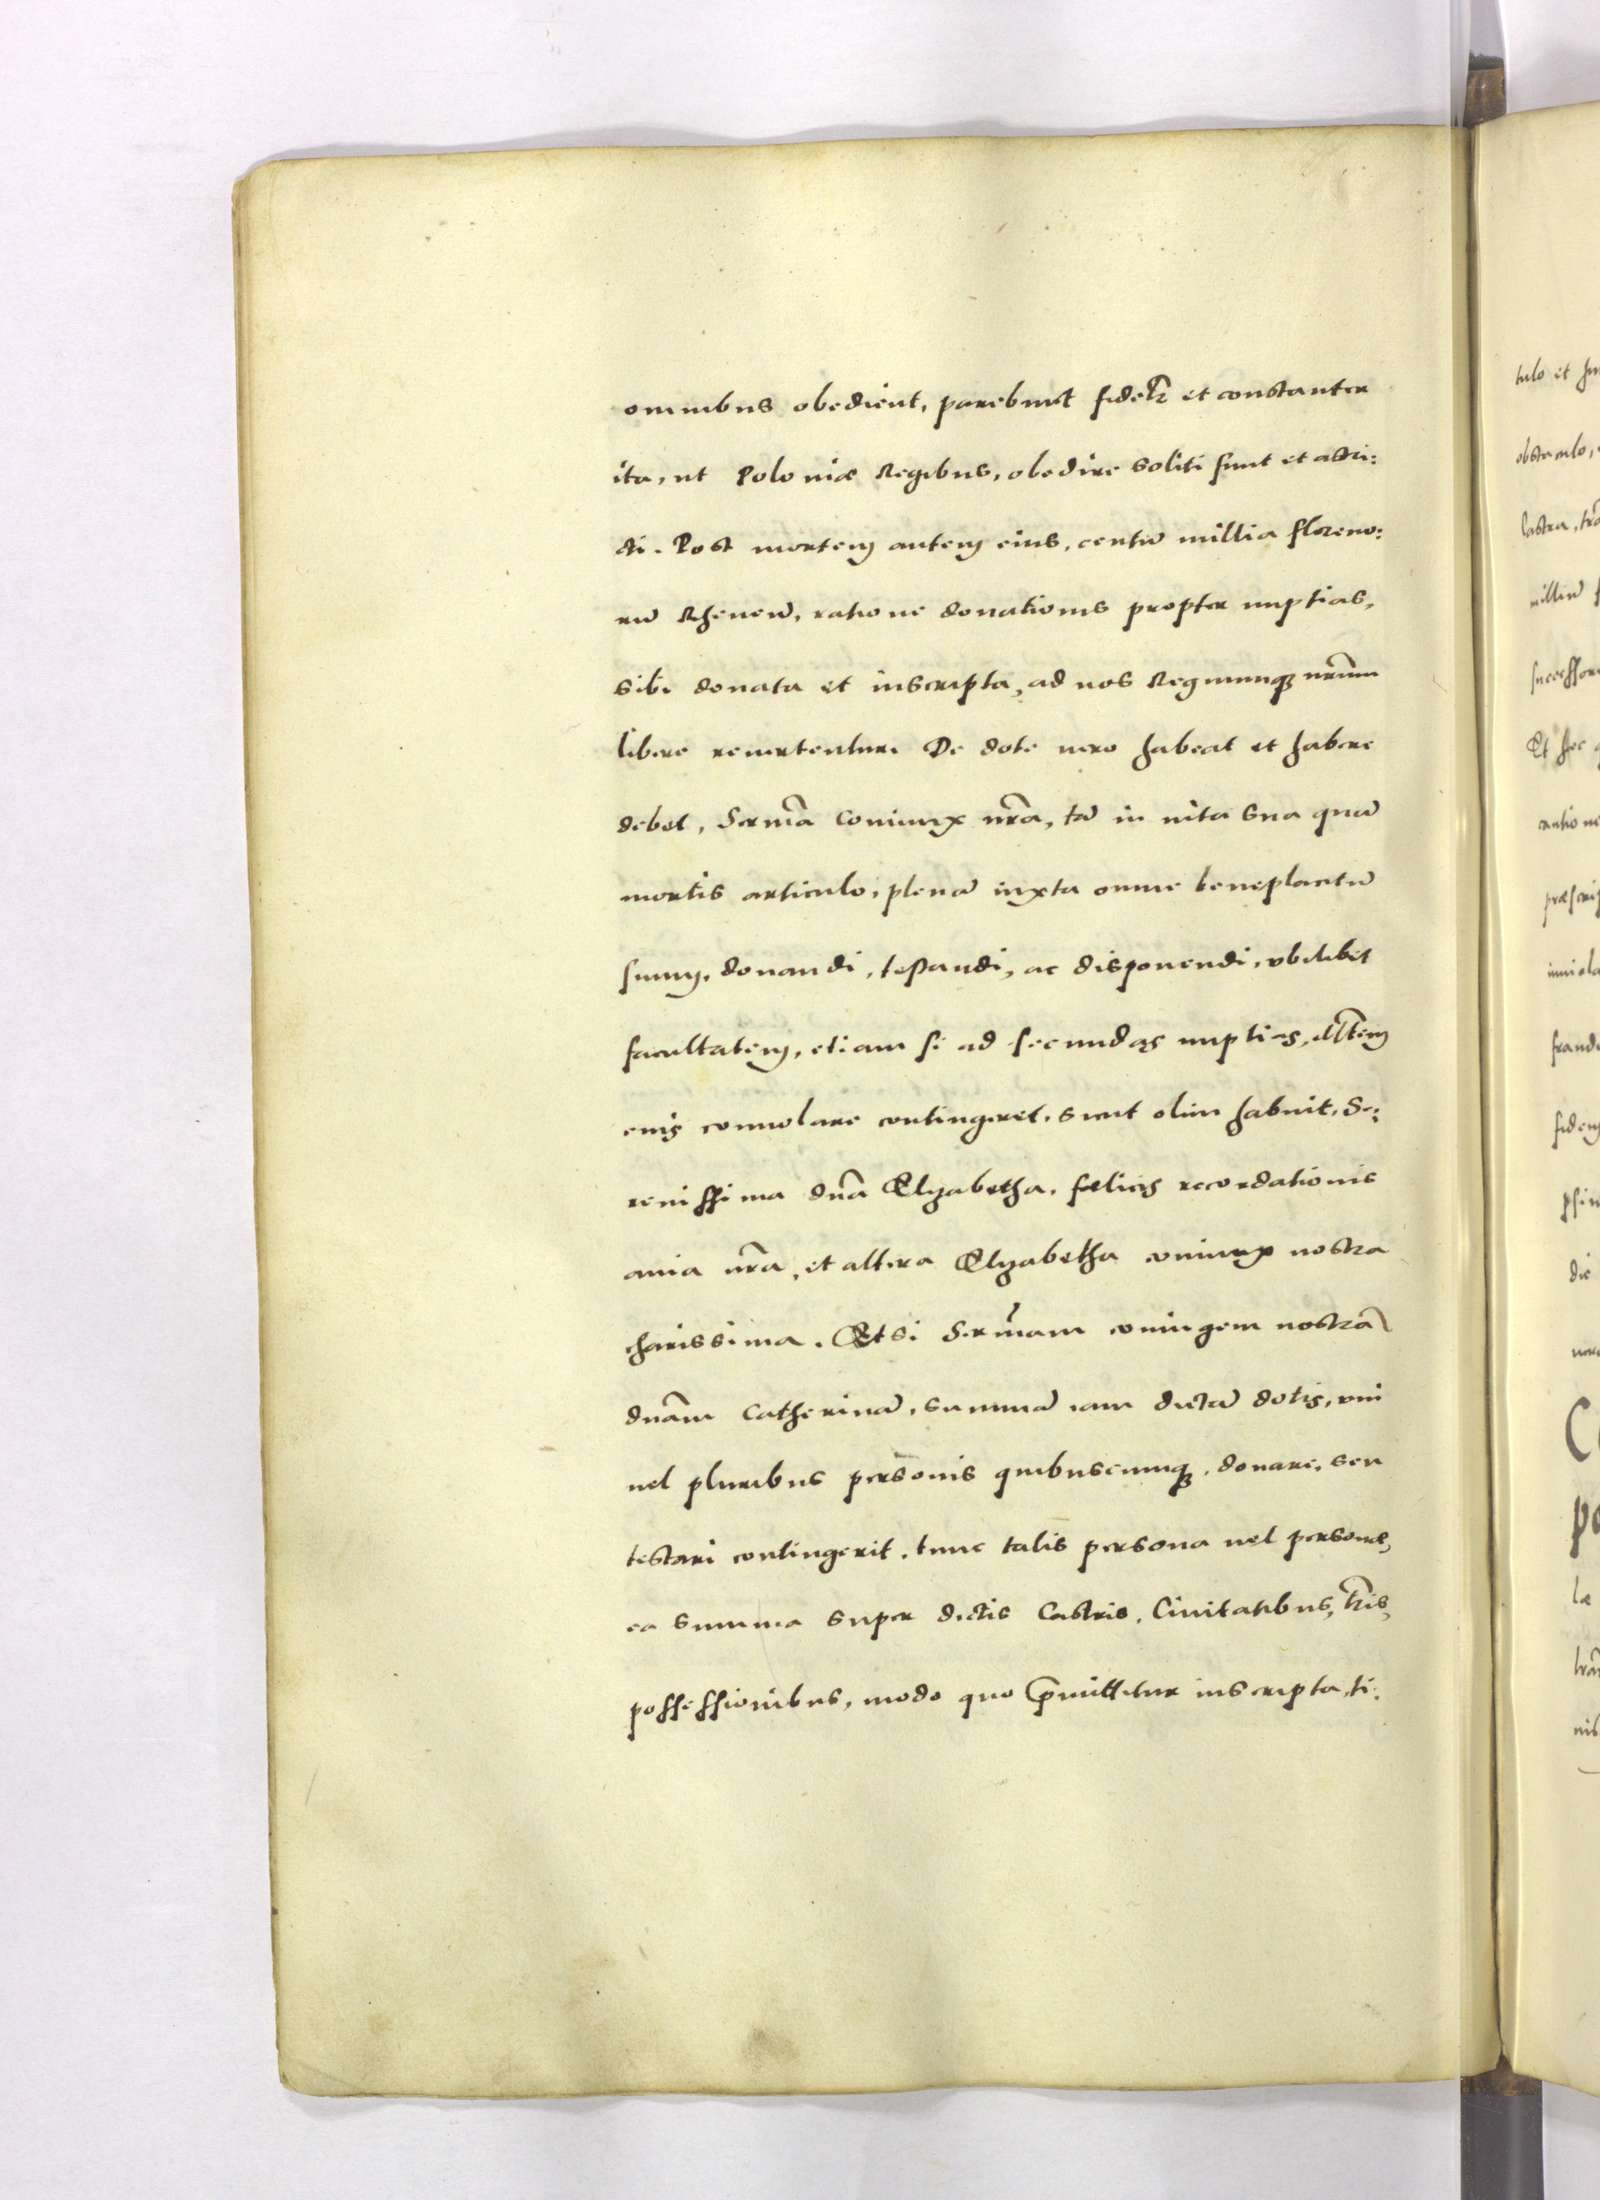 omnibus obedient, parebunt fidelr̃ et constanter
ita, ut Poloniæ Regibus, obedire soliti sunt et astri:
cti. Post mortem autem eius, centũ millia floreno:
rũ Rhenen̄, ratione donationis propter nuptias,
sibi donata et inscripta, ad nos Regnumqꝫ nr̃um
libere reuertentur. De dote uero habeat et habere
debet, Serm̃a Coniunx nr̃a, tã in uita sua quã
mortis articulo, plenã iuxta omne beneplacitũ
suum, donandi, testandi, ac disponendi, ubilibet
facultatem, etiam si ad secundas nuptias,
eius conuolare contingeret, sicut olim habuit, Se:
renissima dña Elyzabetha, fœlicis recordationis
auia nr̃a, et altera Elyzabetha coniunx nostra
charissima. Et si Serm̃am coniugem nostrã
dñam Catherinã, summã iam dictã dotis, uni
uel pluribus personis quibuscumqꝫ, donare, seu
testari contingerit, tunc talis persona uel personæ,
ea summa super dictis Castris, Ciuitatibus, tr̃is,
possessionibus, modo quo p̃mittitur inscripta, ti:
tulo et
obstaculo,
castra,
milliũ
successore
Et hec
fidem
die